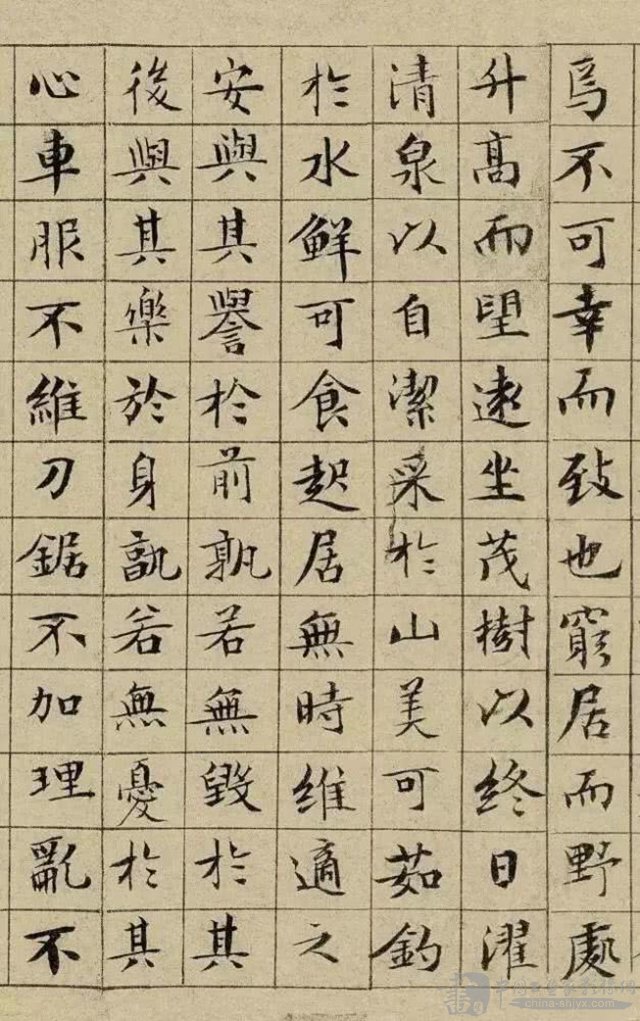 焉不可幸而致也窮居而野處
升髙而望遠坐茂樹以終日濯
清泉以自潔采於山美可茹釣
於水鮮可食起居無時維適之
安與其譽於前孰若無毀於其
後與其樂於身孰若無憂於其
心車服不維刀鋸不加理亂不
china-shiyx.com